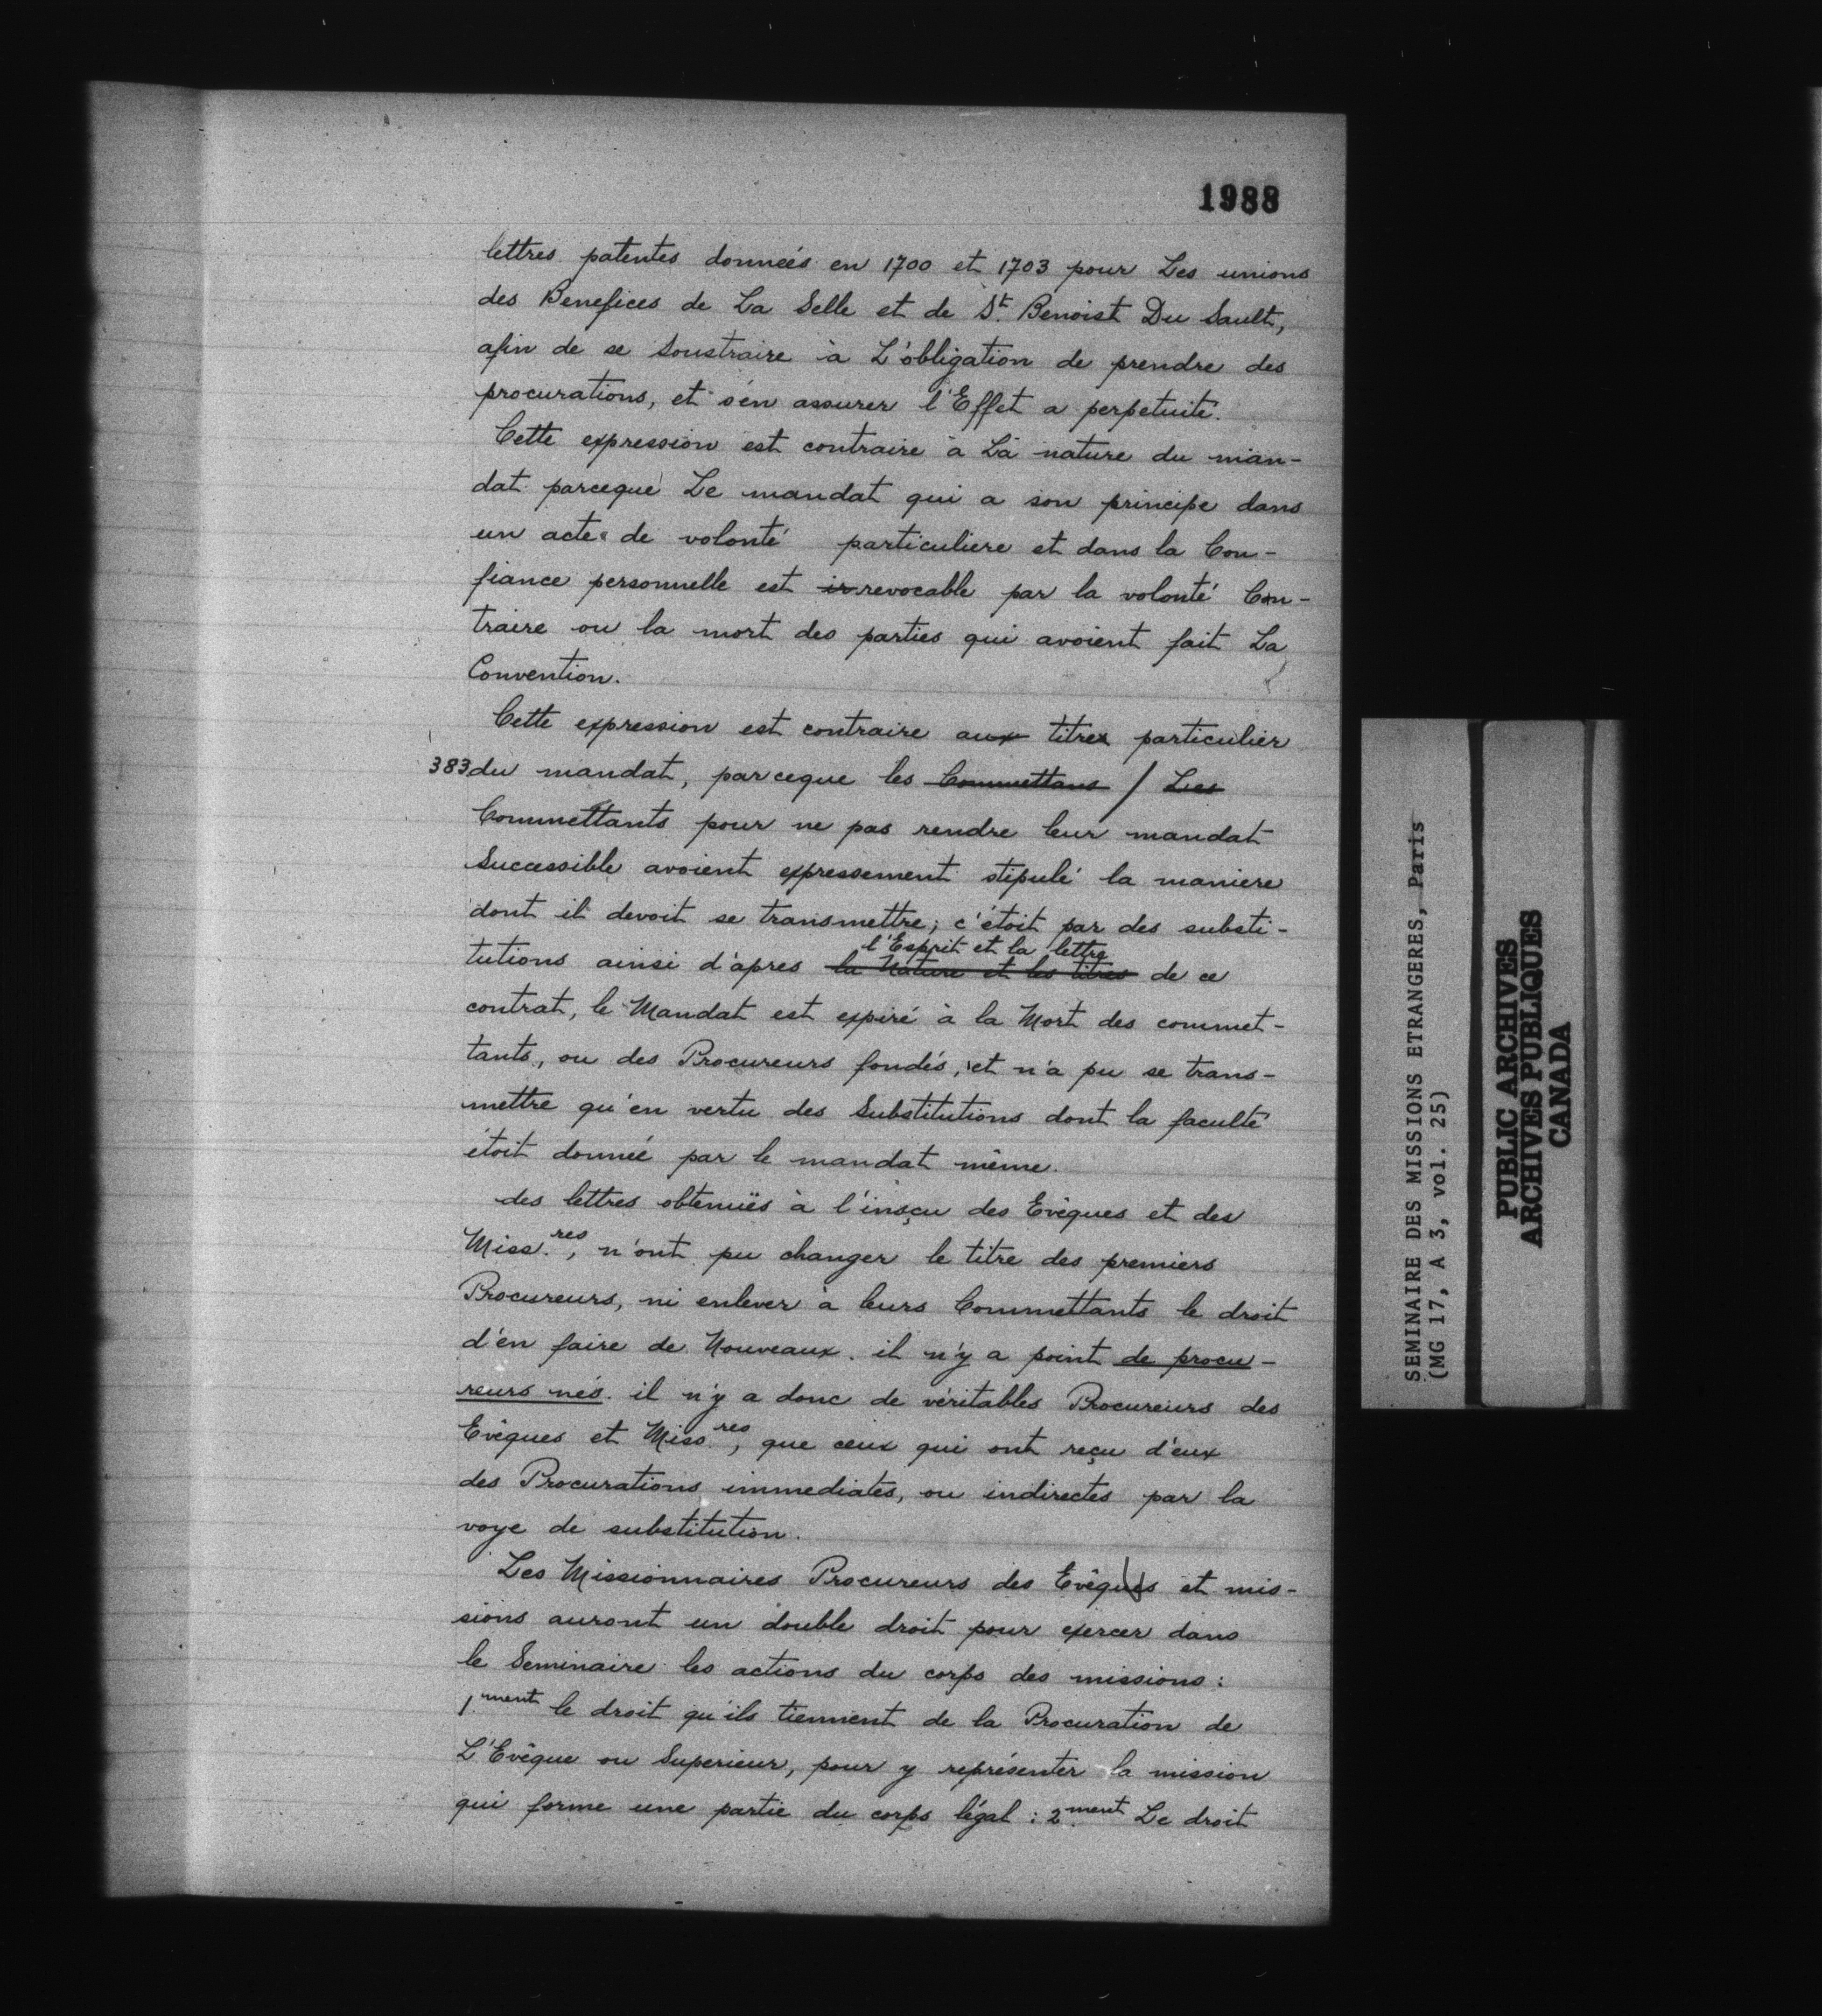 1988
lettres patentes données en 1700 et 1703 pour Les unions
des Benefices de La Selle et de St. Benoist Du Sault,
afin de se soustraire à L'obligation de prendre des
procurations, et s'en assurer l'Effet a perpetuité.
Cette expression est contraire à La nature du man-
dat parceque Le mandat qui a son principe dans
un acte de volonté particuliere et dans la Con-
fiance personnelle est irrevocable par la volonté Con-
traire ou la mort des parties qui avoient fait La
Convention.
Cette expression est contraire aux titres particulier
383 du mandat, parceque les Commettans / Les
Commettants pour ne pas rendre leur mandat
Successible avoient expressement stipulé la maniere
dont il devoit se transmettre; c'étoit par des substi-
l'Esprit et la lettre
tutions ainsi d'apres la Nature et les titres de ce
contrat, le Mandat est expiré à la Mort des commet-
tants, ou des Procureurs fondés, et n'a pu se trans-
mettre qu'en vertu des Substitutions dont la faculté
étoit donnée par le mandat même.
des lettres obtenuës à l'insçu des Evêques et des
Miss.res, n'ont pu changer le titre des premiers
Procureurs, ni enlever à leurs Commettants le droit
d'en faire de Nouveaux. il n'y a point de procu-
reurs nés. il n'y a donc de véritables Procureurs des
Evêques et Miss.res, que ceux qui ont reçu d'eux
des Procurations immediates, ou indirectes par la
voye de substitution.
Les Missionnaires Procureurs des Evêques et mis-
sions auront un double droit pour exercer dans
le Seminaire les actions du corps des missions:
1.ment le droit qu'ils tiennent de la Procuration de
L'Evêque ou Superieur, pour y représenter la mission
qui forme une partie du corps légal: 2.ment Le droit
SEMINAIRE DES MISSIONS ETRANGERES, Paris
(MG 17, A 3, vol. 25)
PUBLIC ARCHIVES
ARCHIVES PUBLIQUES
CANADA